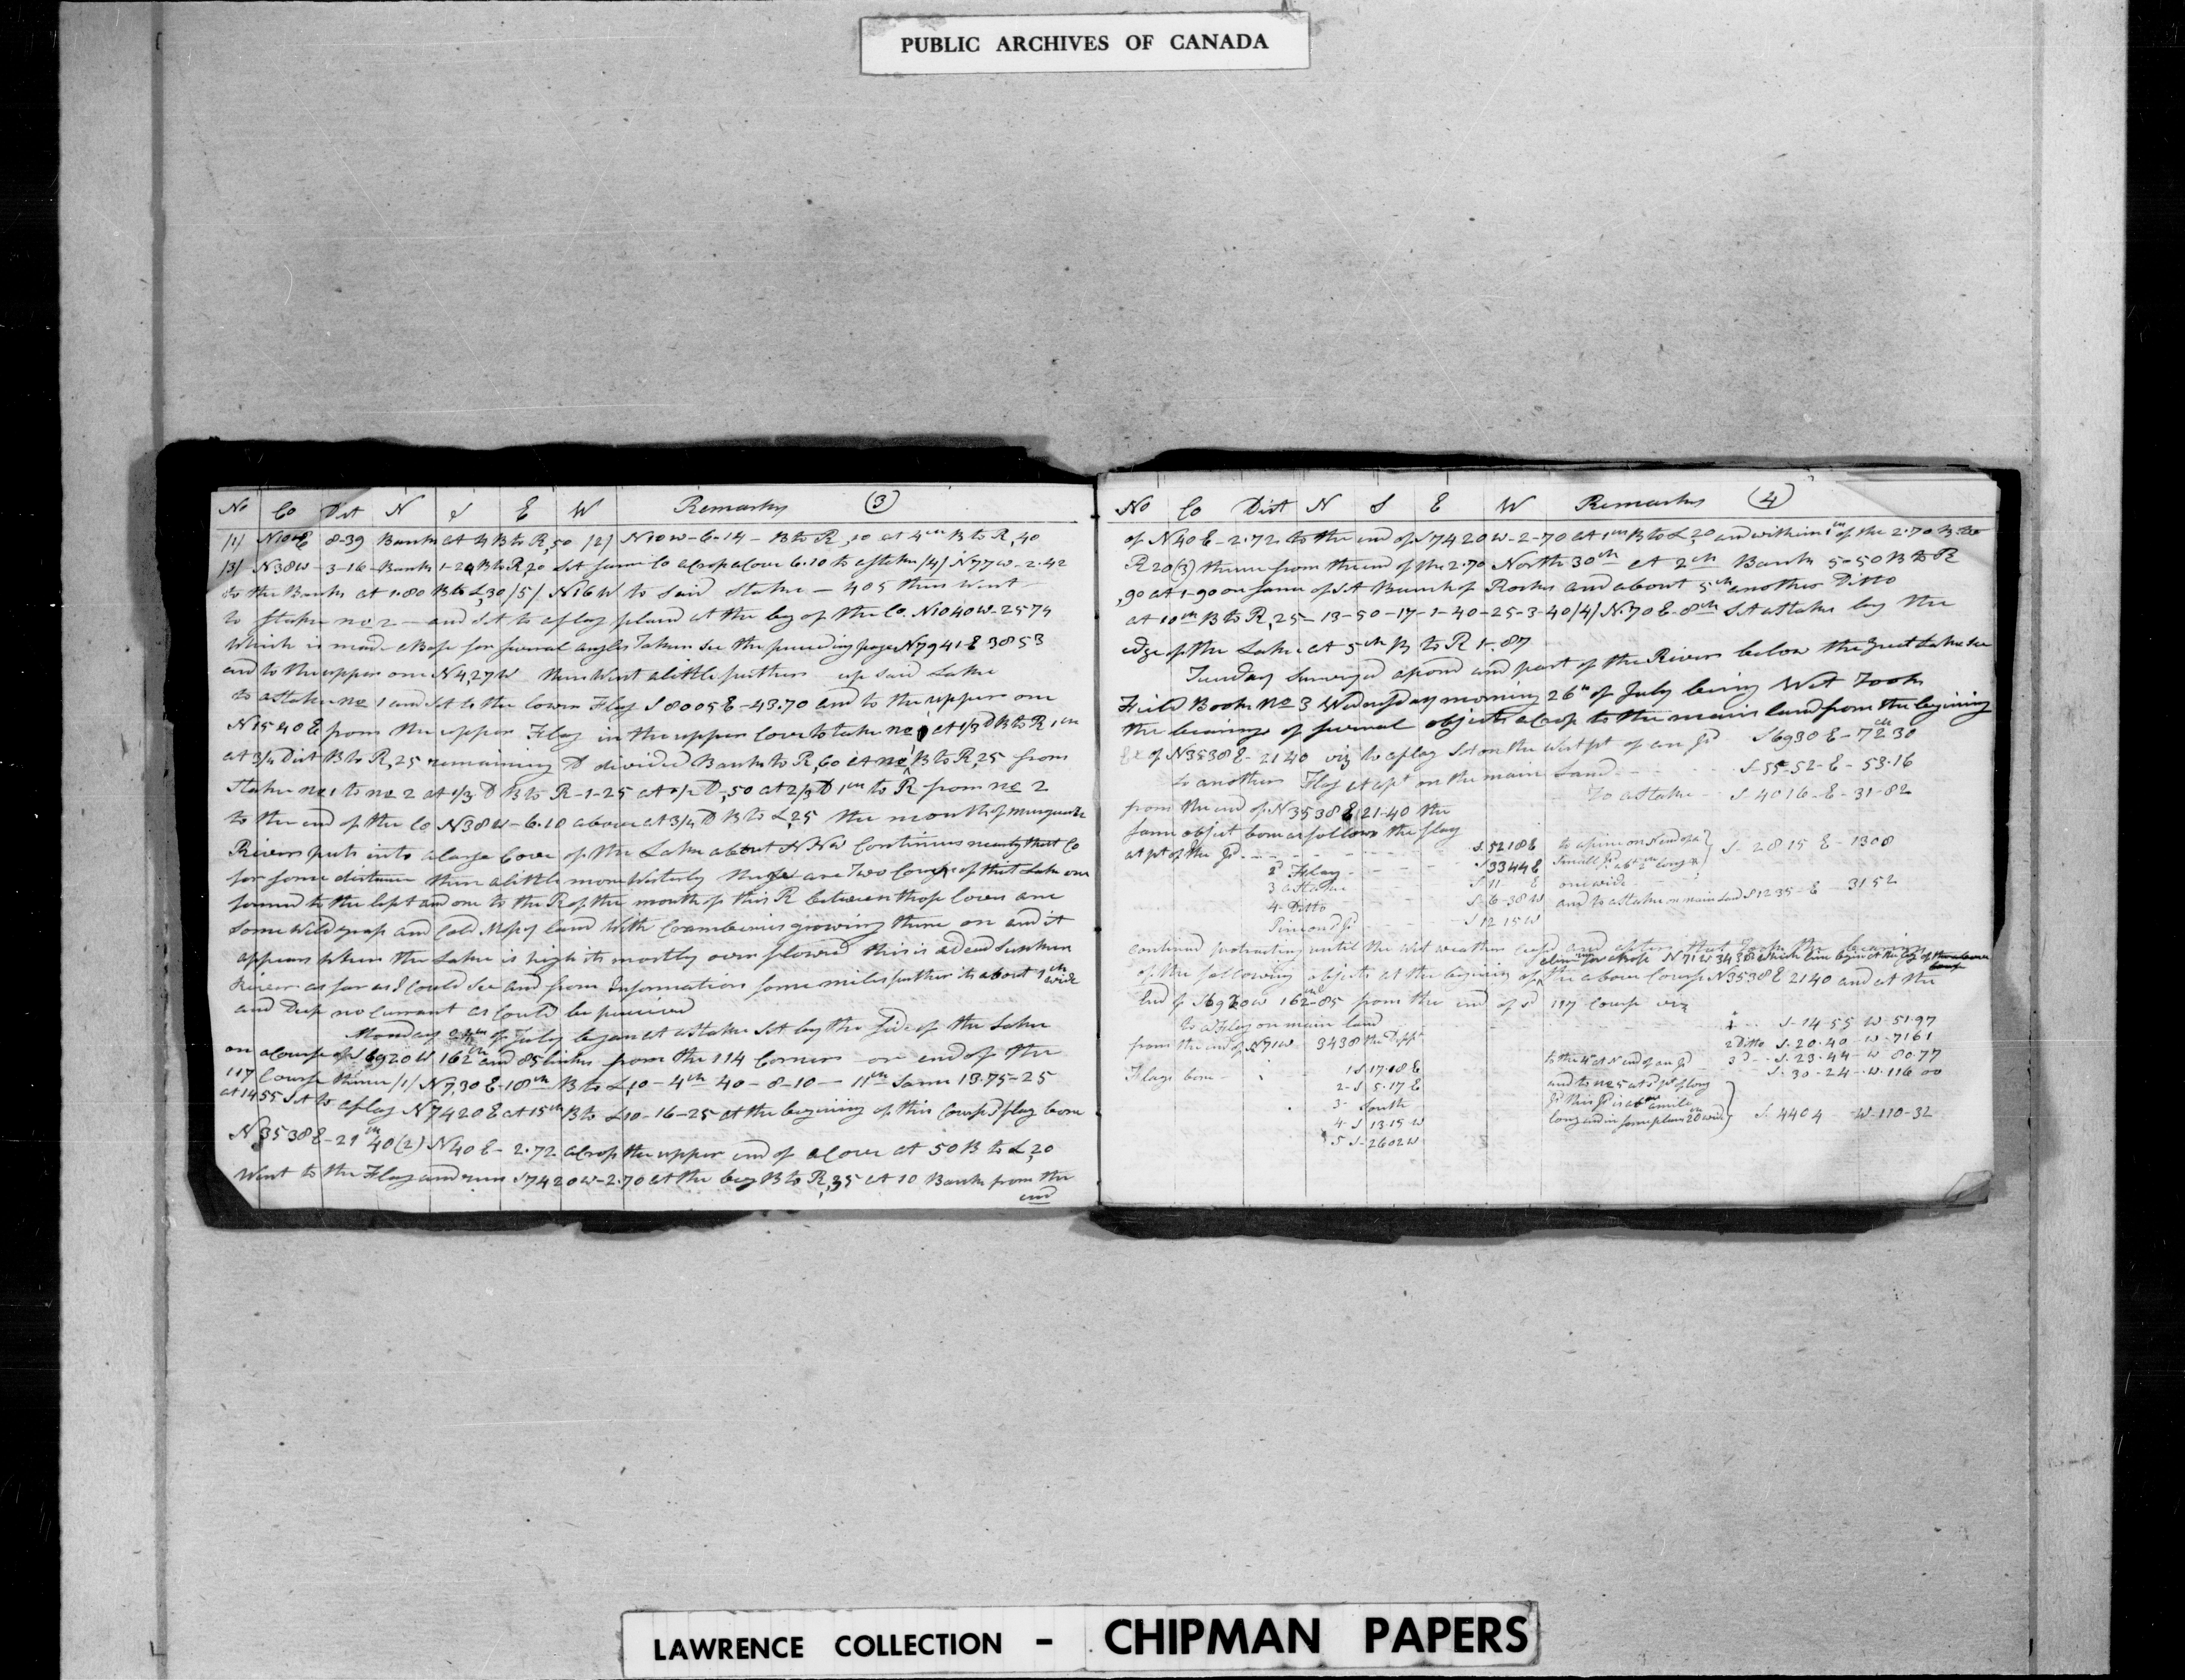 PUBLIC ARCHIVES OF CANADA
No Co Dist N S E W Remarks (3)
/1/ N10E 8-39 Bank at 4 B to R,50 /2/ N10W-6-14- B to R,10 at 4ch B to R,40
/3/ N38W-3-16-Bank 1-20 B to R,20 St same Co acrop a Cove 6.10 to a stake /4/ N77W-2.42
to the Bank at 1.80 B to L,30 /5/ N16W to said Stake - 405 then Went
to Stake no 2 - and St to a flag placed at the beg of the Co. N1040W-2574
Which is made a Base for several angles Taken see the preceeding page N7941E 3853
and to the upper one N4,27W then Went a little further up said Lake
to a stake no 1 and St to the lower Flag S8005E-43.70 and to the upper one
N1540E from the upper Flag in the upper Cove to stake no 1 at 1/3 D B to R 1ch
at 3/4 Dist B to R,25 remaining D divided Bank to R,60 at no 1 B to R,25 from
Stake no 1 to no 2 at 1/3 D B to R-1-25 at 1/2 D,50 at 2/3 D 1ch to R from no 2
to the end of the Co N38W-6.10 above at 3/4 D B to L,25 the mouth of
River puts into a large Cove of the Lake about NNW Continues nearly that Co
for some distance then a little more Westerly there are Two Coves of this Lake one
formed to the left and one to the R of the mouth of this R between those Coves are
Some Wild grap and Cold Mosy land With Cramberries growing there on and it
appears when the Lake is high its mostly over flowed this is a dead Sunken
River as far as I could See and from Information some miles further its about 1ch wide
and Deep no Current as Could be perceived
Monday 24th of July began at a stake Set by the side of the Lake
on a Course of S6920W 162ch and 85 links from the 114 Corner or end of the
117 Course thence /1/ N7,30E-18ch B to L,10-4ch 40-8-10-11ch Same 13.75-25
at 1455 St to a flag N7420E at 15ch B to L10-16-25 at the begining of this Course sd flag bore
N3538E-21ch 40 (2) N40E-2.72 acrop the upper end of a Cove at 50 B to L,20
Went to the Flag and run S7420W-2.70 at the beg B to R,35 at 10 Bank from the
end
No Co Dist N S E W Remarks (4)
of N40E-2.72 to the end of S7420W-2-70 at 1ch B to L,20 and within 1ch of the 2.70 B to
R20 (3) thence from the end of the 2.70 North 30ch at 2ch Bank 5-50 B to R
,90 at 1-90 on same of St Bunch of Rocks and about 5ch another Ditto
at 10ch B to R,25-13-50-17-1-40-25-3-40 /4/ N.70E-8ch St a stake by the
edge of the Lake at 5ch B to R 1-.87
Tuesday Surveyed a pond and part of the River below the great Lake see
Field Book No 3 Wednesday morning 26th of July being Wet Took
the bearings of several objects acrop to the main land from the begining
of N3538E-2140 viz to a flag Set on the West pt of an Id S6930E-72ch 30
to another Flag at a pt on the main Land S-55-52-E-53.16
To a stake - S4016-E-31-82
from the end of N3538E 21-40 the
same object bore as follows the flag
at pt of the Id S.5218E to a pine on N end of a } S-2815E-1308
2d Flag S3344E Small Id abt 2ch long &
3 a Stake S11 E one wide
4-Ditto S-6-38W and to a stake on main land S1235-E 3152
Pine on Id S1215W
continued protracting until the Wet weather ceased and after that Took the bearings
of the following objects at the begining of the above Course N3538E 2140 and at the
N71W 3438 Which line begins at the beg of the above
Course
End of S6920W 162-85 from the end of sd 117 Course viz
To a Flag on main land 1 S-14-55 W-51.97
from the end of N71W 3438 the Diff 2 Ditto S.20-40-W-7161
to the 4 at N end of an Id 3d S-23-44-W 80.77
Flags bore 1 S17.18E S-30-24-W-116 00
2-S 5.17E and to no 5 at S pt of long
3- South Id this Id is abt a mile
4-S 13.15W long and in some places 20ch wide } S-4404-W-110-32
5 S-2602W
LAWRENCE COLLECTION - CHIPMAN PAPERS